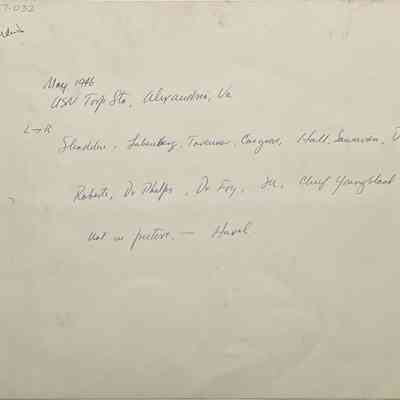 7-032
May 1946
USN Torp Sta, Alexandria, Va
L→R
Sladdin, Lubenberg, Taverner, Cosgrove, Hall, Sanarwan, D
Roberts, Dr Phelps, Dr Foy, Jr, Chief Youngblood
Not in picture. — Havel